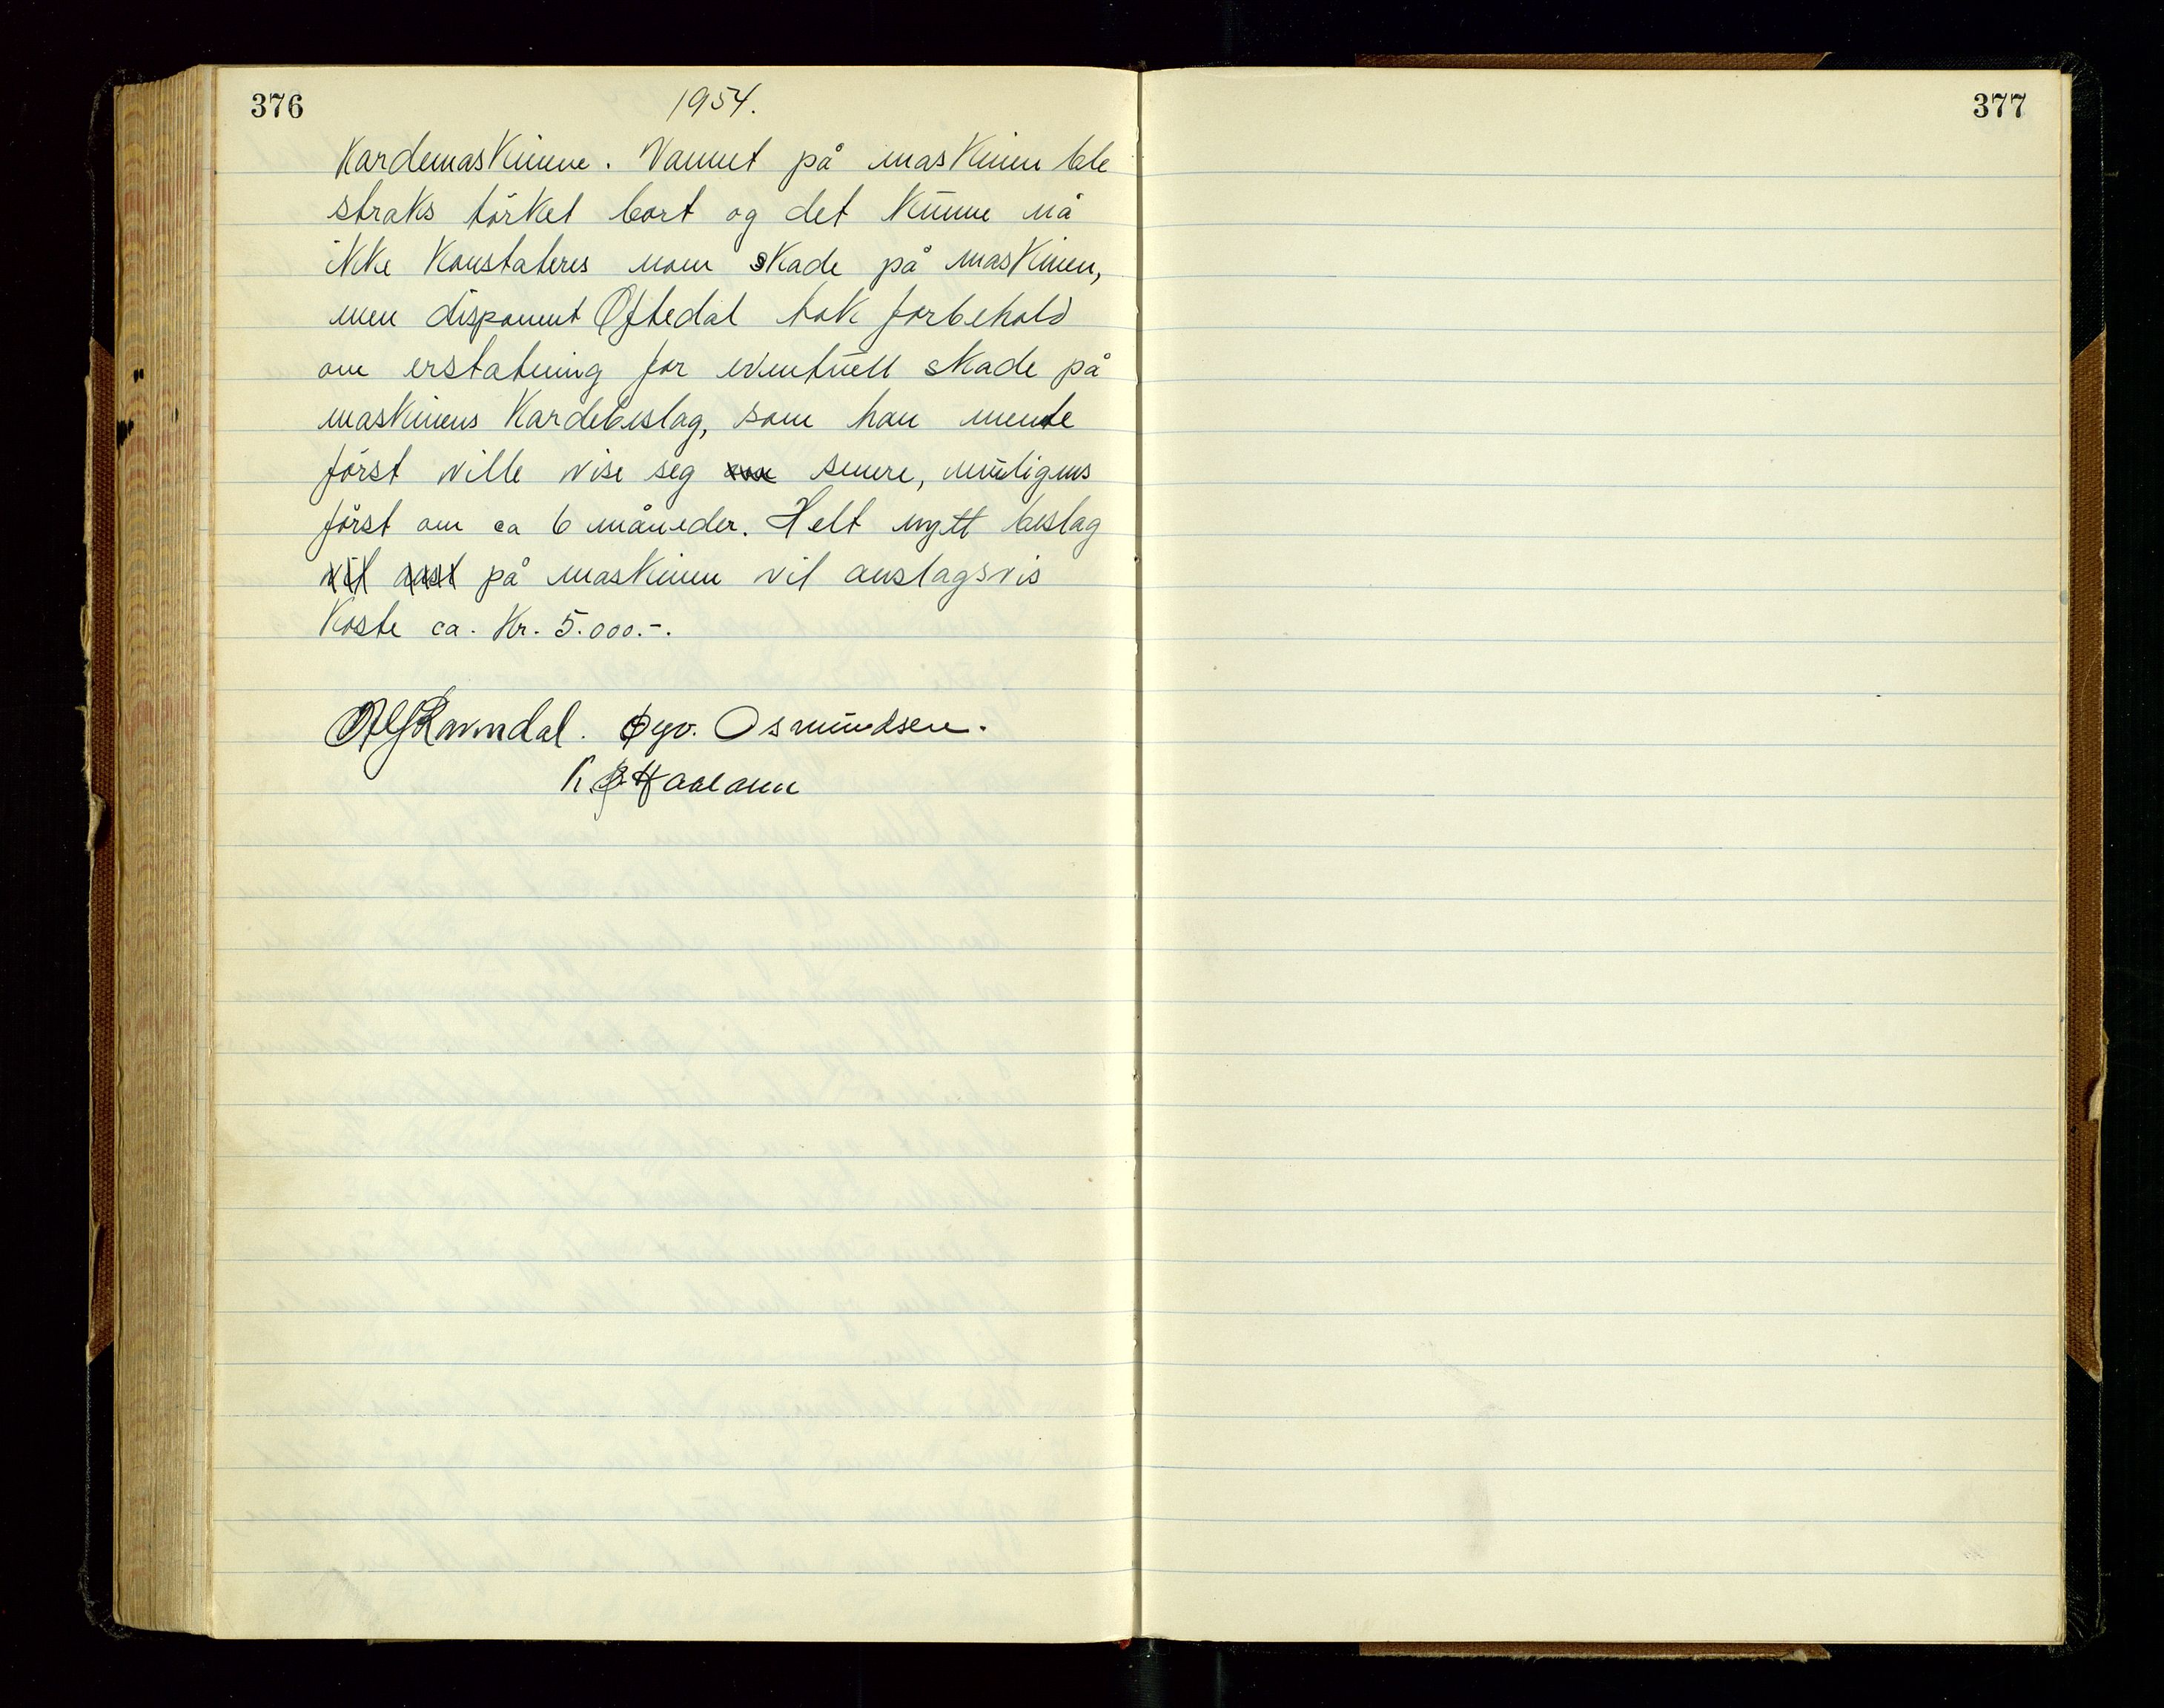 376
1954.
Kardemaskinene. Vannet på maskinen ble
straks tørket bort og det kunne nå
ikke konstateres noen skade på maskinen,
men disponent Oftedal tok forbehold
om erstatning for eventuell skade på
maskinens kardebeslag, som han mente
først ville vise seg senere, muligens
først om ca 6 måneder. Helt nytt beslag
vil på maskinen vil anslagsvis
koste ca. Kr. 5.000.-.
Alf Ravndal. Osmundsen.
377